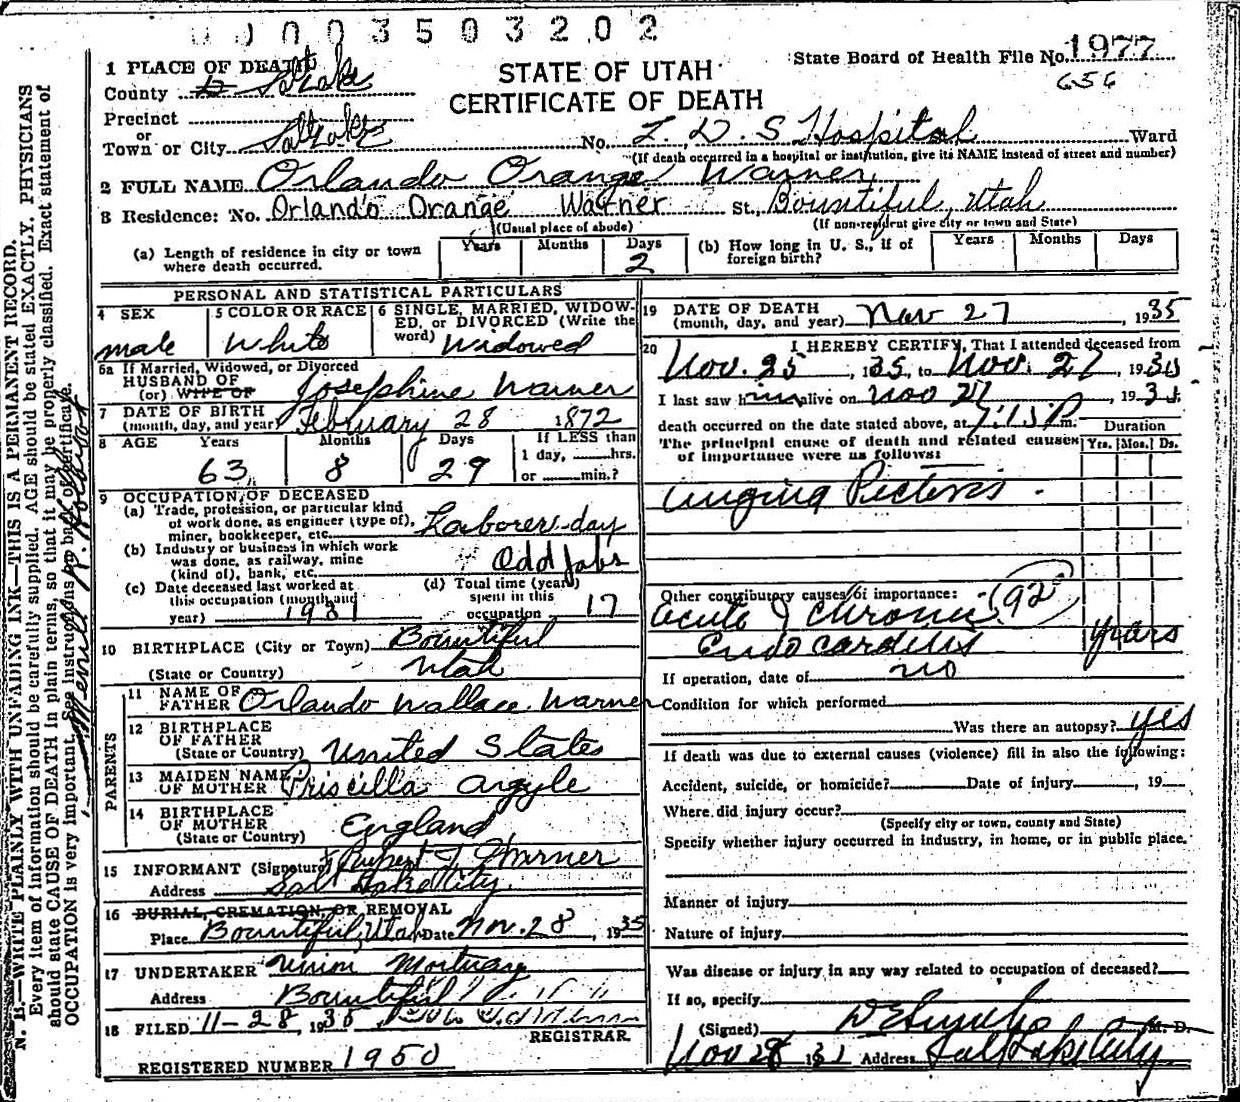 0003503202
State Board of Health File No. 1977
656
1 PLACE OF DEATH
STATE OF UTAH
County Salt Lake
CERTIFICATE OF DEATH
Precinct
or
Town or City Salt Lake No. L. D. S Hospital Ward
(If death occurred in a hospital or institution, give its NAME instead of street and number)
2 FULL NAME Orlando Orange Warner
3 Residence: No. Orlando Orange Warner St., Bountiful, Utah
(Usual place of abode) (If non-resident give city or town and State)
(a) Length of residence in city or town where death occurred. Years Months Days 2
(b) How long in U. S., if of foreign birth? Years Months Days
PERSONAL AND STATISTICAL PARTICULARS
4 SEX male
5 COLOR OR RACE White
6 SINGLE, MARRIED, WIDOW-
ED, or DIVORCED (Write the
word) Widowed
6a If Married, Widowed, or Divorced
HUSBAND OF
(or) WIFE OF Josephine Warner
7 DATE OF BIRTH
(month, day, and year) February 28 1872
8 AGE Years Months Days If LESS than
63 8 29 1 day, hrs.
or min.?
9 OCCUPATION OF DECEASED
(a) Trade, profession, or particular kind
of work done, as engineer (type of),
miner, bookkeeper, etc. Laborer-day
(b) Industry or business in which work
was done, as railway, mine
(kind of), bank, etc. Odd Jobs
(c) Date deceased last worked at
this occupation (month and
year) 1931
(d) Total time (years)
spent in this
occupation 17
10 BIRTHPLACE (City or Town) Bountiful
(State or Country) Utah
PARENTS
11 NAME OF
FATHER Orlando Wallace Warner
12 BIRTHPLACE
OF FATHER
(State or Country) United States
13 MAIDEN NAME
OF MOTHER Priscilla Argyle
14 BIRTHPLACE
OF MOTHER
(State or Country) England
15 INFORMANT (Signature) Rupert J. Warner
Address Salt Lake City
16 BURIAL, CREMATION, OR REMOVAL
Place Bountiful, Utah Date Nov. 28, 1935
17 UNDERTAKER Union Mortuary
Address Bountiful
18 FILED 11-28, 1935
REGISTRAR
REGISTERED NUMBER 1950
19 DATE OF DEATH
(month, day, and year) Nov 27, 1935
20 I HEREBY CERTIFY, That I attended deceased from
Nov. 25, 1935, to Nov. 27, 1935
I last saw him alive on Nov 27, 1935
death occurred on the date stated above, at m.
Duration
The principal cause of death and related causes
of importance were as follows:
Yrs. Mos. Ds.
angina Pectoris.
Other contributory causes of importance:
92
acute & chronic
Endocarditis years
If operation, date of no
Condition for which performed
Was there an autopsy? yes
If death was due to external causes (violence) fill in also the following:
Accident, suicide, or homicide? Date of injury , 19
Where did injury occur?
(Specify city or town, county and State)
Specify whether injury occurred in industry, in home, or in public place.
Manner of injury
Nature of injury
Was disease or injury in any way related to occupation of deceased?
If so, specify
(Signed) M. D.
Nov 28 Address Salt Lake City
N. B.—WRITE PLAINLY WITH UNFADING INK—THIS IS A PERMANENT RECORD.
Every item of information should be carefully supplied. AGE should be stated EXACTLY. PHYSICIANS
should state CAUSE OF DEATH in plain terms, so that it may be properly classified. Exact statement of
OCCUPATION is very important. See instructions on back of certificate.